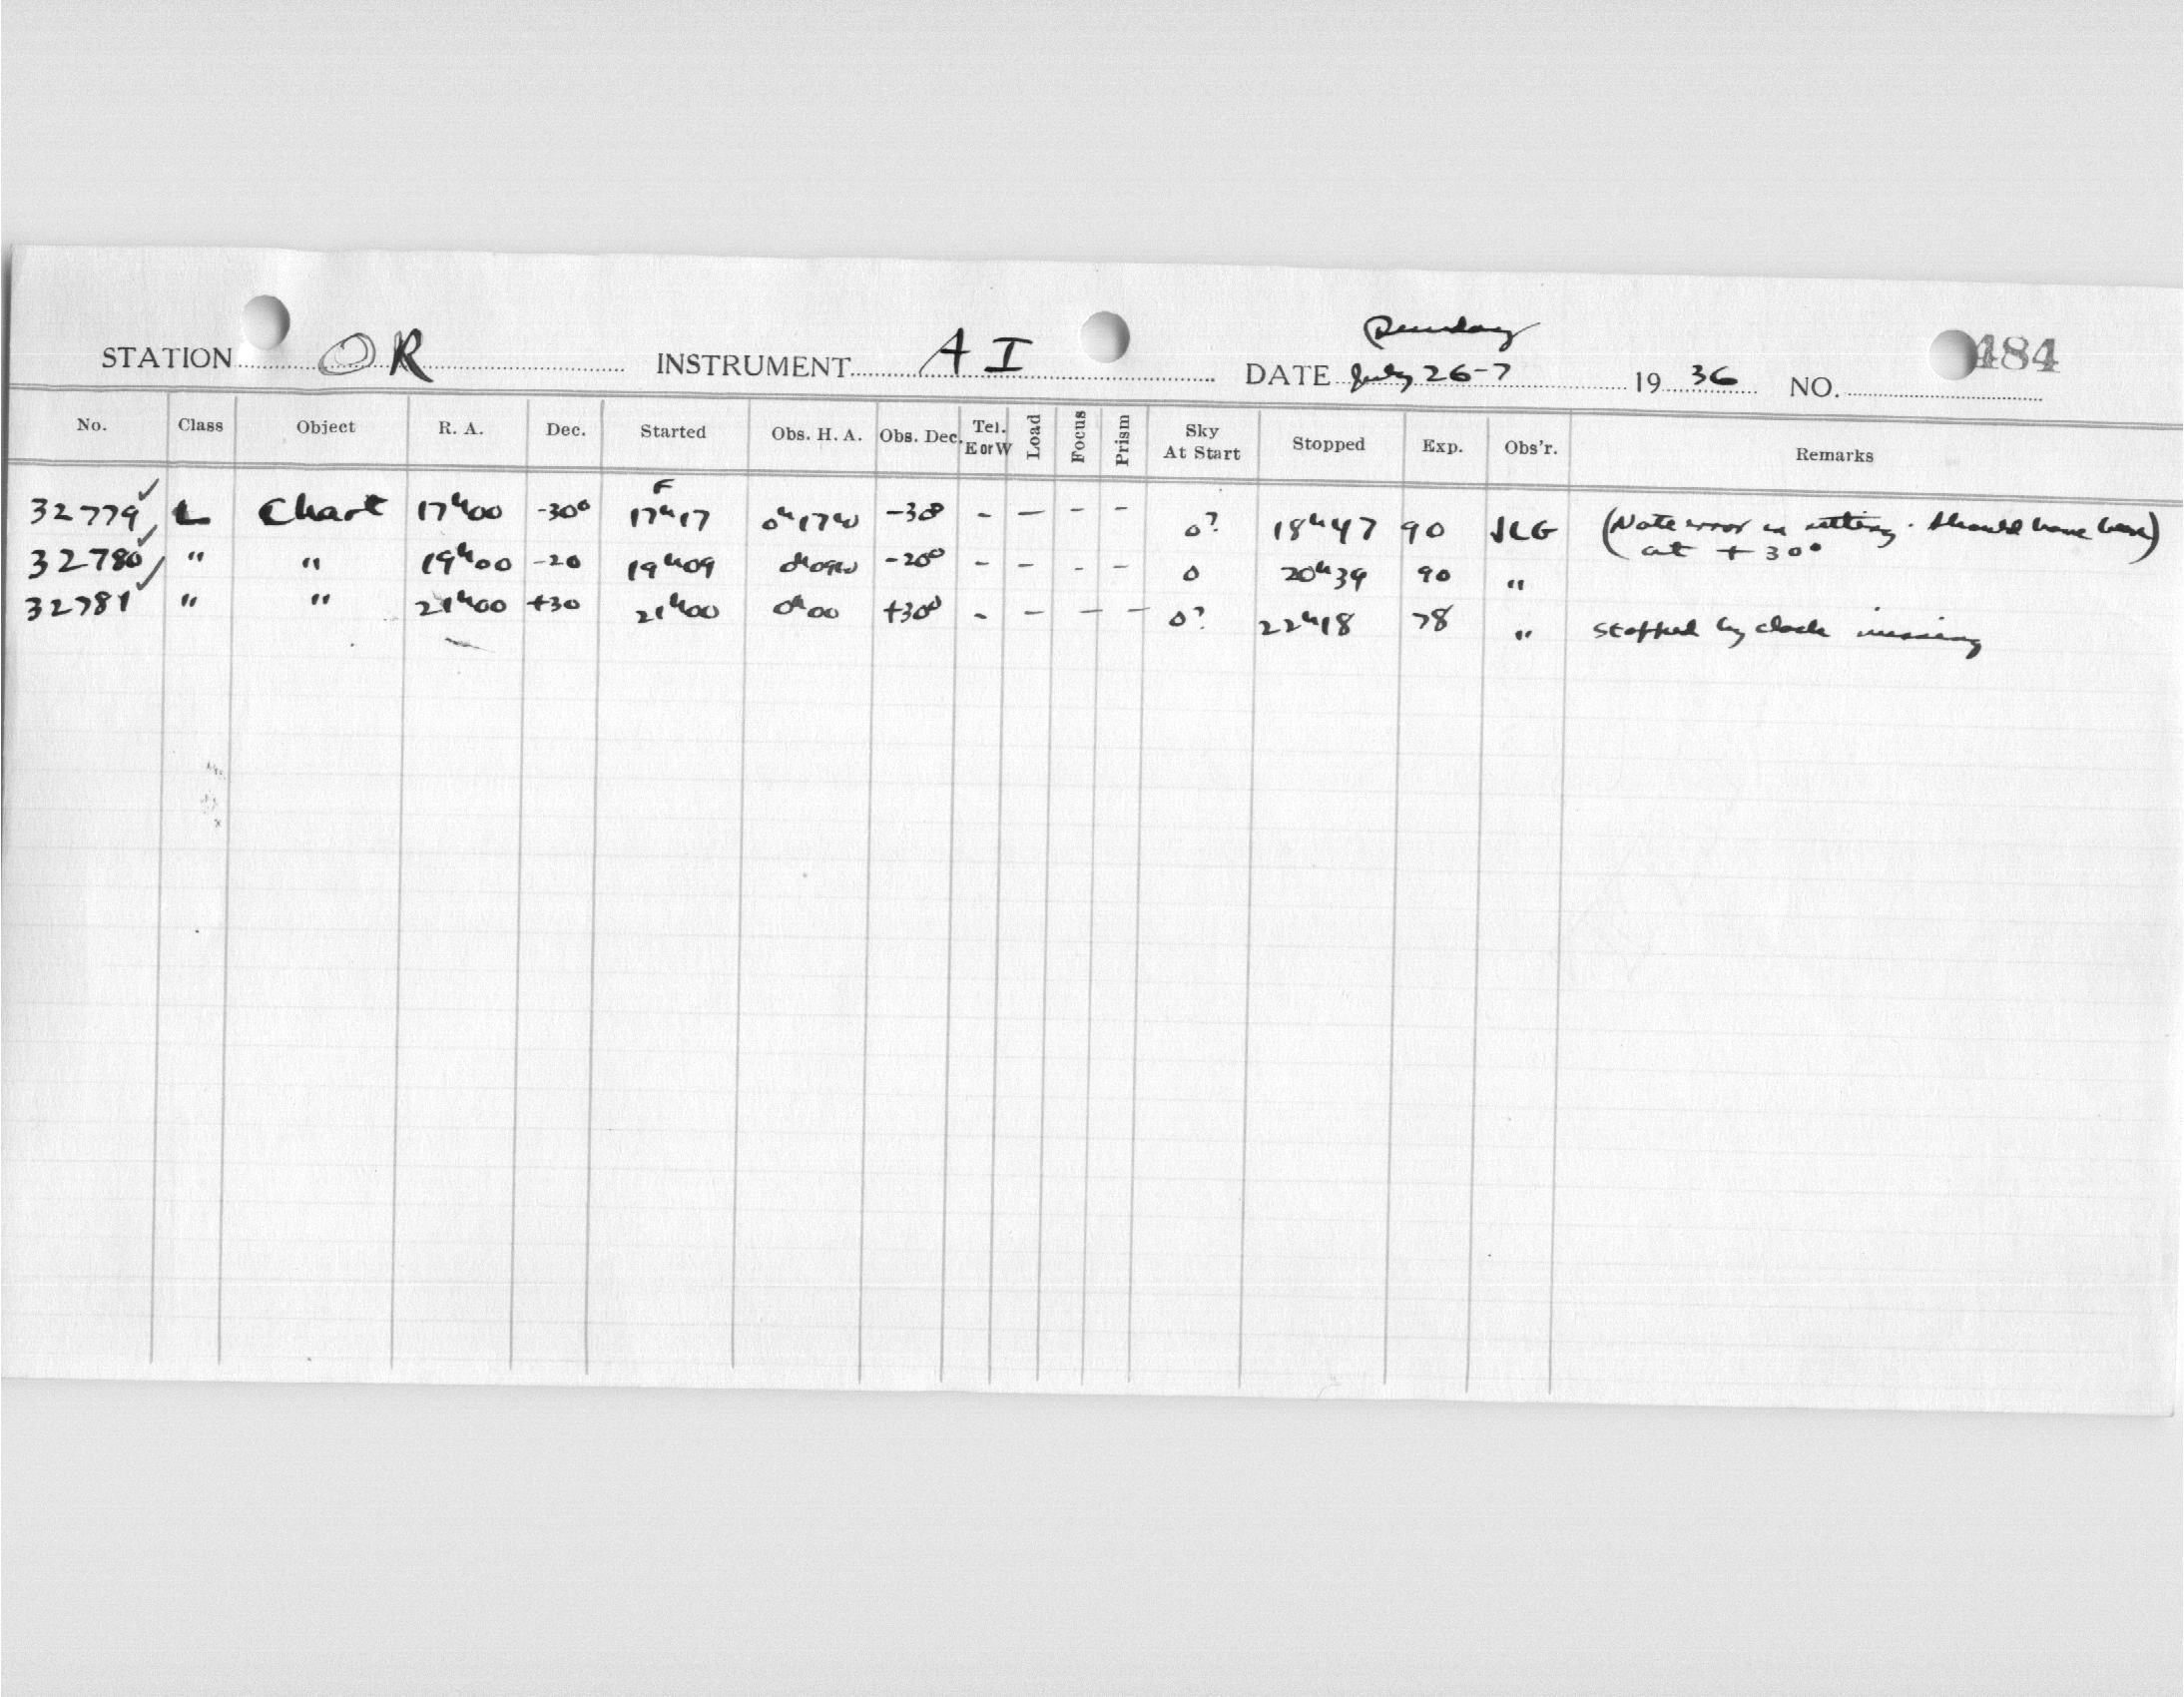 Sunday
STATION OR INSTRUMENT AI DATE July 26-7 19 36 NO. 484
No. Class Object R. A. Dec. Started Obs. H. A. Obs. Dec. Tel. E or W Load Focus Prism Sky At Start Stopped Exp. Obs'r. Remarks
F
32779 ✓ L Chart 17h00 -30° 17h17 0h17W -30° - - - - 0? 18h47 90 JLG (Note error in setting. Should have been
at +30°)
32780 ✓ " " 19h00 -20 19h09 0h09W -20° - - - - 0 20h39 90 "
32781 ✓ " " 21h00 +30 21h00 0h00 +30° - - - - 0? 22h18 78 " Stopped by clock missing